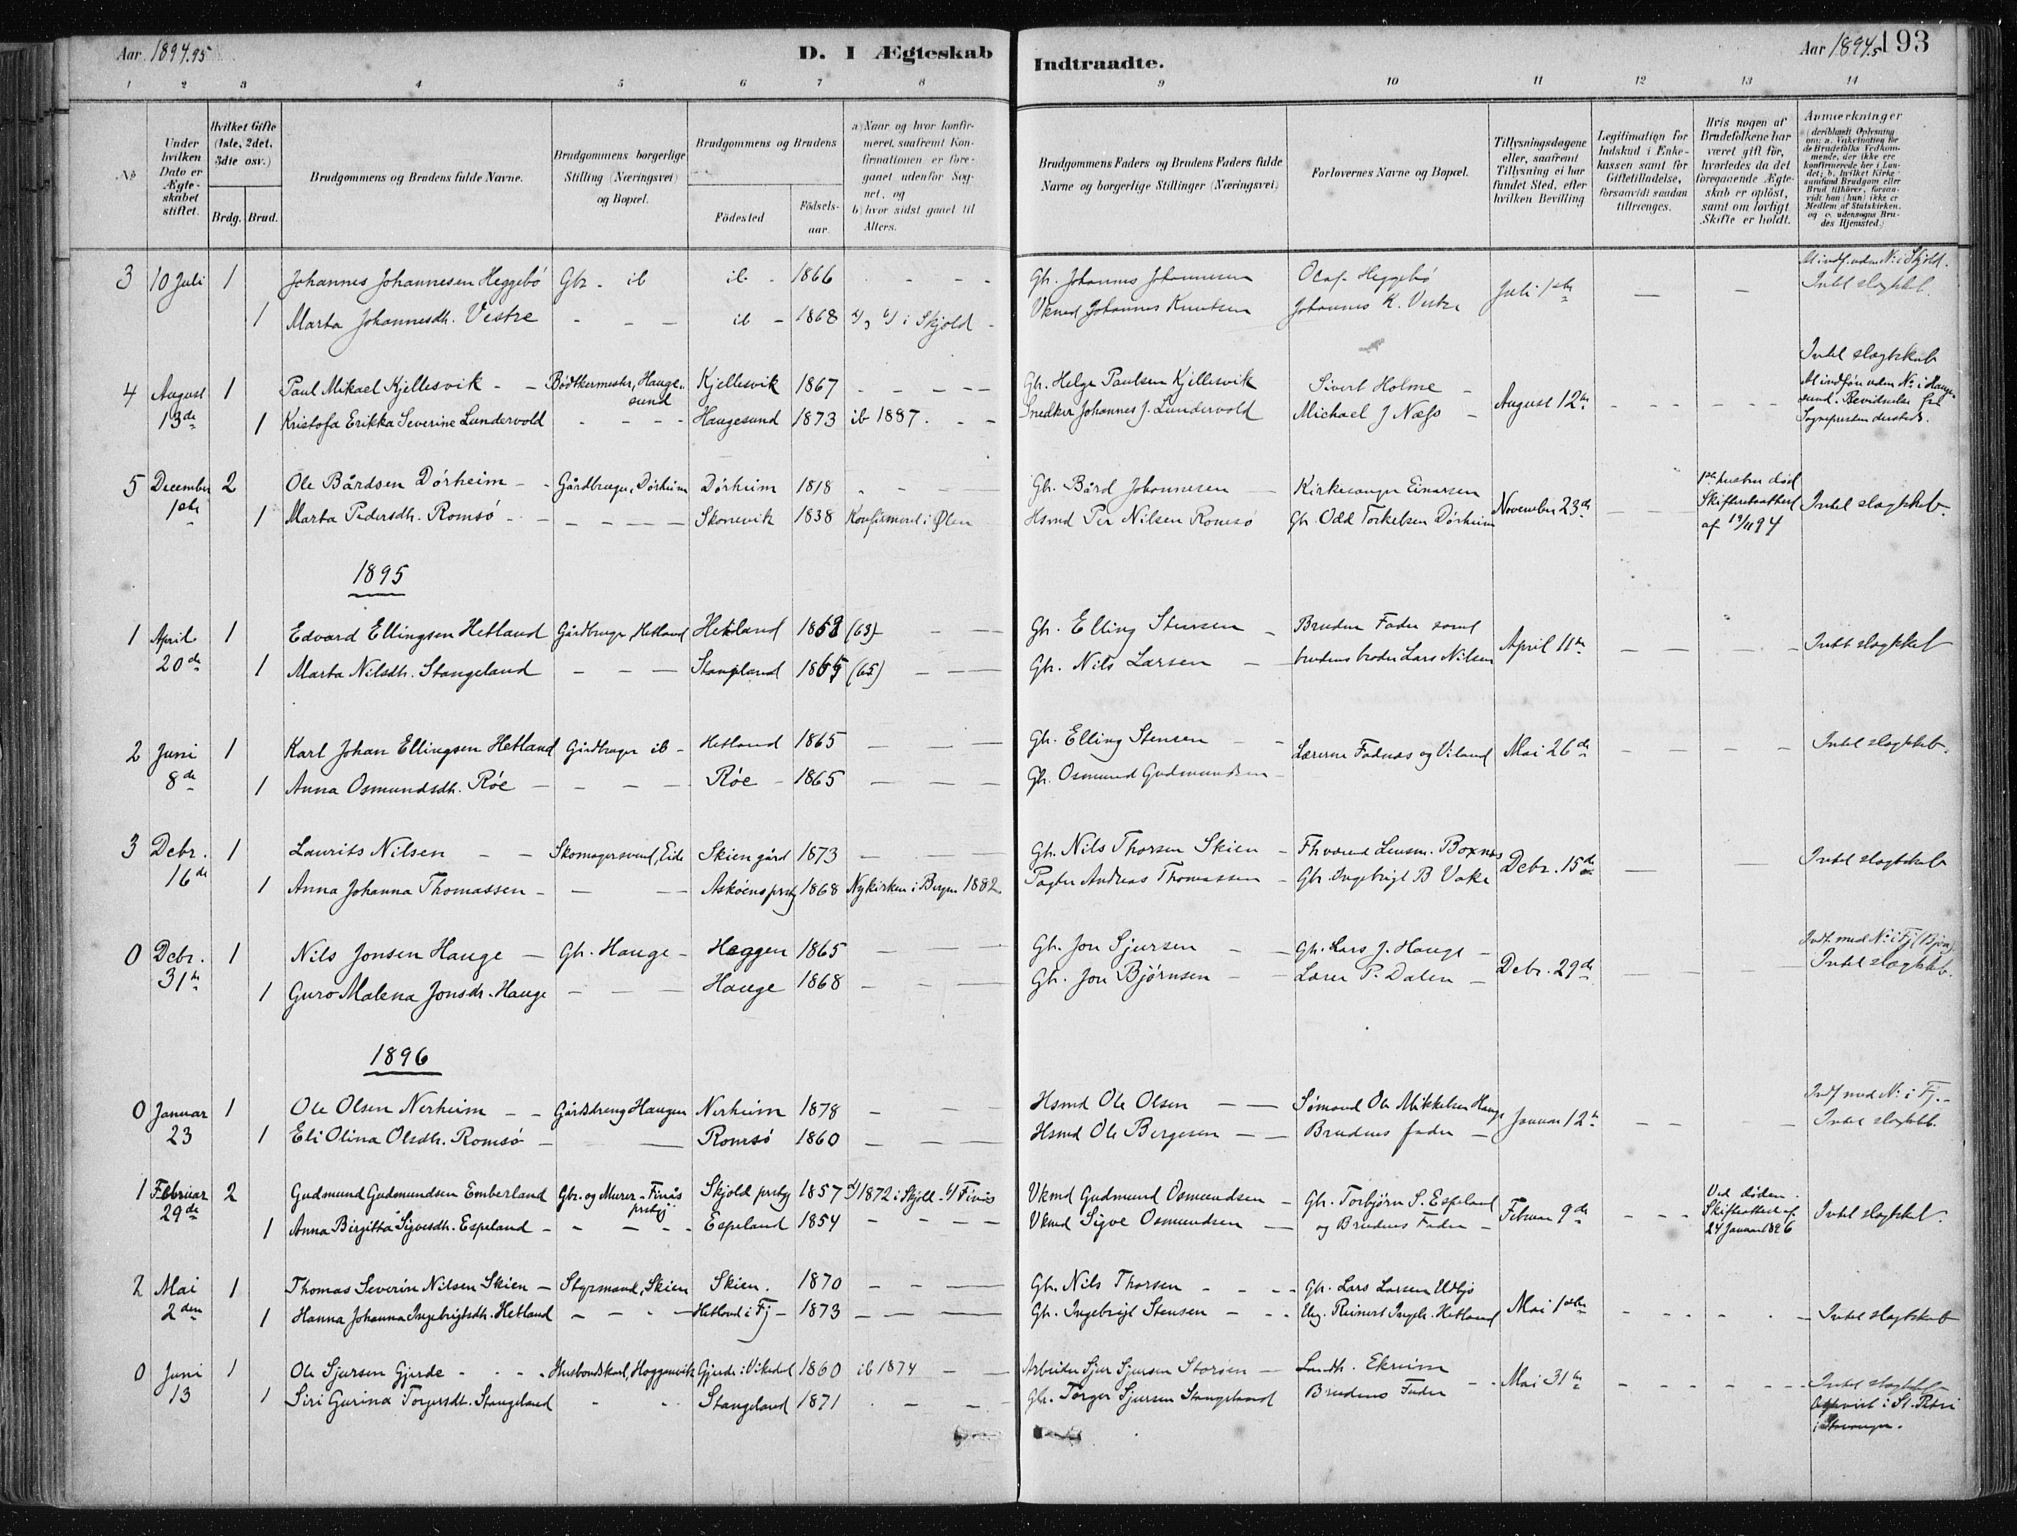 Aar 1894.95 D. I Ægteskab Indtraadte. Aar 1894.5 193
1 2 3 4 5 6 7 8 9 10 11 12 13 14
No
Under hvilken Dato er Ægteskabet stiftet.
Hvilket Gifte (1ste, 2det, 3die osv.) Brdg. Brud.
Brudgommens og Brudens fulde Navne.
Brudgommens borgerlige Stilling (Næringsvei) og Bopæl.
Brudgommens og Brudens Fødested Fødsels-aar.
a) Naar og hvor konfirmeret, saafremt Konfirmationen er foregaaet udenfor Sognet, og b) hvor sidst gaaet til Alters.
Brudgommens Faders og Brudens Faders fulde Navne og borgerlige Stillinger (Næringsvei)
Forlovernes Navne og Bopæl.
Tillysningsdagene eller, saafremt Tillysning ei har fundet Sted, efter hvilken Bevilling
Legitimation for Indskud i Enkekassen samt for Giftetilladelse, forsaavidt saadan tiltrænges.
Hvis nogen af Brudefolkene har været gift før, hvorledes da det foregaaende Ægteskab er opløst, samt om lovligt Skifte er holdt.
Anmærkninger (deriblandt Oplysning om: a. Vakcination for de Brudefolks Vedkommende, der ikke ere konfirmerede her i Landet; b. hvilket Kirkesamfund Brudgom eller Brud tilhører, forsaavidt han (hun) ikke er Medlem af Statskirken, og c. udensogns Brudes Hjemsted.)
3 10 Juli 1 Johannes Johannesen Heggebö Gbr. ib ib 1866 - - - Gb. Johannes Johannesen Olaf Heggebö Juli 1ste — — Intet slægtskab.
1 Marta Johannesdh. Vestre - - - ib - 1868 i Skjold - Vkmd Johannes Knutsen Johannes K. Vestre
4 August 13de 1 Paul Mikael Kjellesvik - - Bødtkermester, Haugesund Kjellesvik 1867 - - - - Gb. Helge Paulsen Kjellesvik Sivert Holme - August 12te Intet slægtskab
1 Kristofa Erikka Severine Lundervold - - - - Haugesund 1873 ib 1887. - - Snedker Johannes J. Lundervold Michael J Næss - Sognepresten dersteds.
5 December 1ste 2 Ole Bårdsen Dörheim - - Gårdbruger, Dörheim Dörheim 1818 Gb. Bård Johannesen — Kirkesanger Einarsen November 23de Skifteattest af 19/11 94 Intet slægtskab.
1 Marta Pedersdh. Romsö - - - Skonevik 1838 Konfirmeret i Ølen Hsmd Per Nilsen Romsö Gb. Odd Torkelsen Dörheim
1895
1 April 20de 1 Edvard Ellingsen Hetland Gårdbruger, Hetland Hetland (63) - Gb. Elling Stensen — Brudens Fader samt April 11te Intet slægtskab
1 Marta Nilsdh. Stangeland - - - Stangeland 1865 (65) - - Gb. Nils Larsen — brudens broder Lars Nilsen
2 Juni 8de 1 Karl Johan Ellingsen Hetland Gårdbruger ib - Hetland 1865 — — Gb. Elling Stensen - - Lærerne Fadnæs og Viland Mai 26de Intet slægtskab.
1 Anna Osmundsdh. Röe - - - Röe - 1865 — — Gb. Osmund Gudmundsen -
3 Debr. 16de 1 Laurits Nilsen - - Skomagersvend, Eide Skien gård 1873 — — Gb. Nils Thorsen Skien - Fhværend Lensm. Boxnæs Debr. 15de Intet slægtskab
1 Anna Johanna Thomassen - - - Askøens prstg 1868 Nykirken i Bergen 1882. Andreas Thomassen - Gb. Ingebrigt B Vake
0 Debr. 31te 1 Nils Jonsen Hauge - Gb. Hauge - Heggen 1865 — — Gb. Jon Sjursen - - Gb. Lars J. Hauge - Debr. 29de Intet slægtskab.
1 Guro Malena Jonsdh. Hauge - - - Hauge 1868 — — Gb. Jon Bjørnsen - - Lærer P. Dalen -
1896
0 Januar 23 1 Ole Olsen Nerheim - - Gårdsdreng Haugen Nerheim 1878 — — Hsmd Ole Olsen — — Sømand Ole Mikkelsen Hauge Januar 12te Indf med N: i Fj. - Intet slægtskb.
1 Eli Olina Olsdh. Romsö - — Romsö 1860 — — Hsmd Ole Bergesen — — Brudens fader —
1 Februar 29de 2 Gudmund Gudmundsen Emberland Gbr. og Murer - Finås prstgj. Skjold prstgj 1857 1872 i Skjold Finås Vkmd Gudmund Osmundsen - Gb. Torbjørn S. Espeland Februar 9de Ved døden. Skifteattest af Intet slægtskab.
1 Anna Birgitta Sigvesdh. Espeland - - - Espeland 1854 — — Vkmd Sigve Osmundsen - og Brudens Fader -
2 Mai 2den 1 Thomas Severin Nilsen Skien - Styrmand, Skien Skien. 1870 - - — Gb. Nils Thorsen - - - Gb. Lars Larsen Utbjö Mai 1ste Intet slægtskab
1 Hanna Johanna Ingebrigtsdh. Hetland - - - Hetland i Fj - 1873 — — Gb. Ingebrigt Stensen - - - Ung. Reinert Ingeb. Hetland
0 Juni 13 1 Ole Sjursen Gjerde - - - Husbondskarl, Hogganvik Gjerde i Vikedal 1860 ib 1874 — - Arbeider Sjur Sjursen Storsen — Landh. Ekreim Mai 31te Intet slægtskab
1 Siri Gurina Torgersdh. Stangeland - - Stangeland 1871 - - - Gb. Torger Sjursen Stangeland Brudens Fader - - i St. Petri i Stavanger.